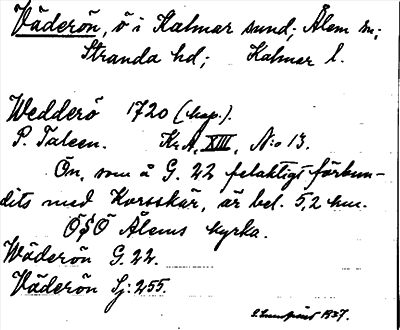 Väderön, ö i Kalmar sund; Ålem sn;
Stranda hd; Kalmar l.
Wedderö 1720 (kap.).
P. Taleen. Kr A, XIII, N:o 13.
Ön, som å G. 22 felaktigt förbun-
dits med Korsskär, är bel. 5,2 km.
ÖSÖ Ålems kyrka.
Wäderön G. 22.
Väderön Sj: 255.
1937.